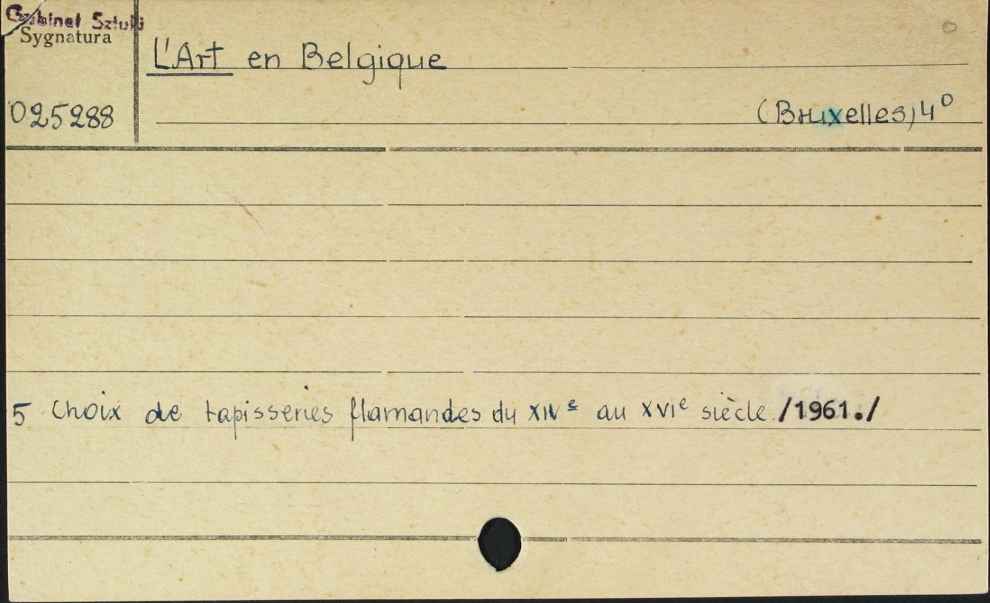 Gabinet Sztuki
Sygnatura
L'Art en Belgique
025288
(Bruxelles) 4°
5 Choix de tapisseries flamandes du XIVe au XVIe siècle /1961./